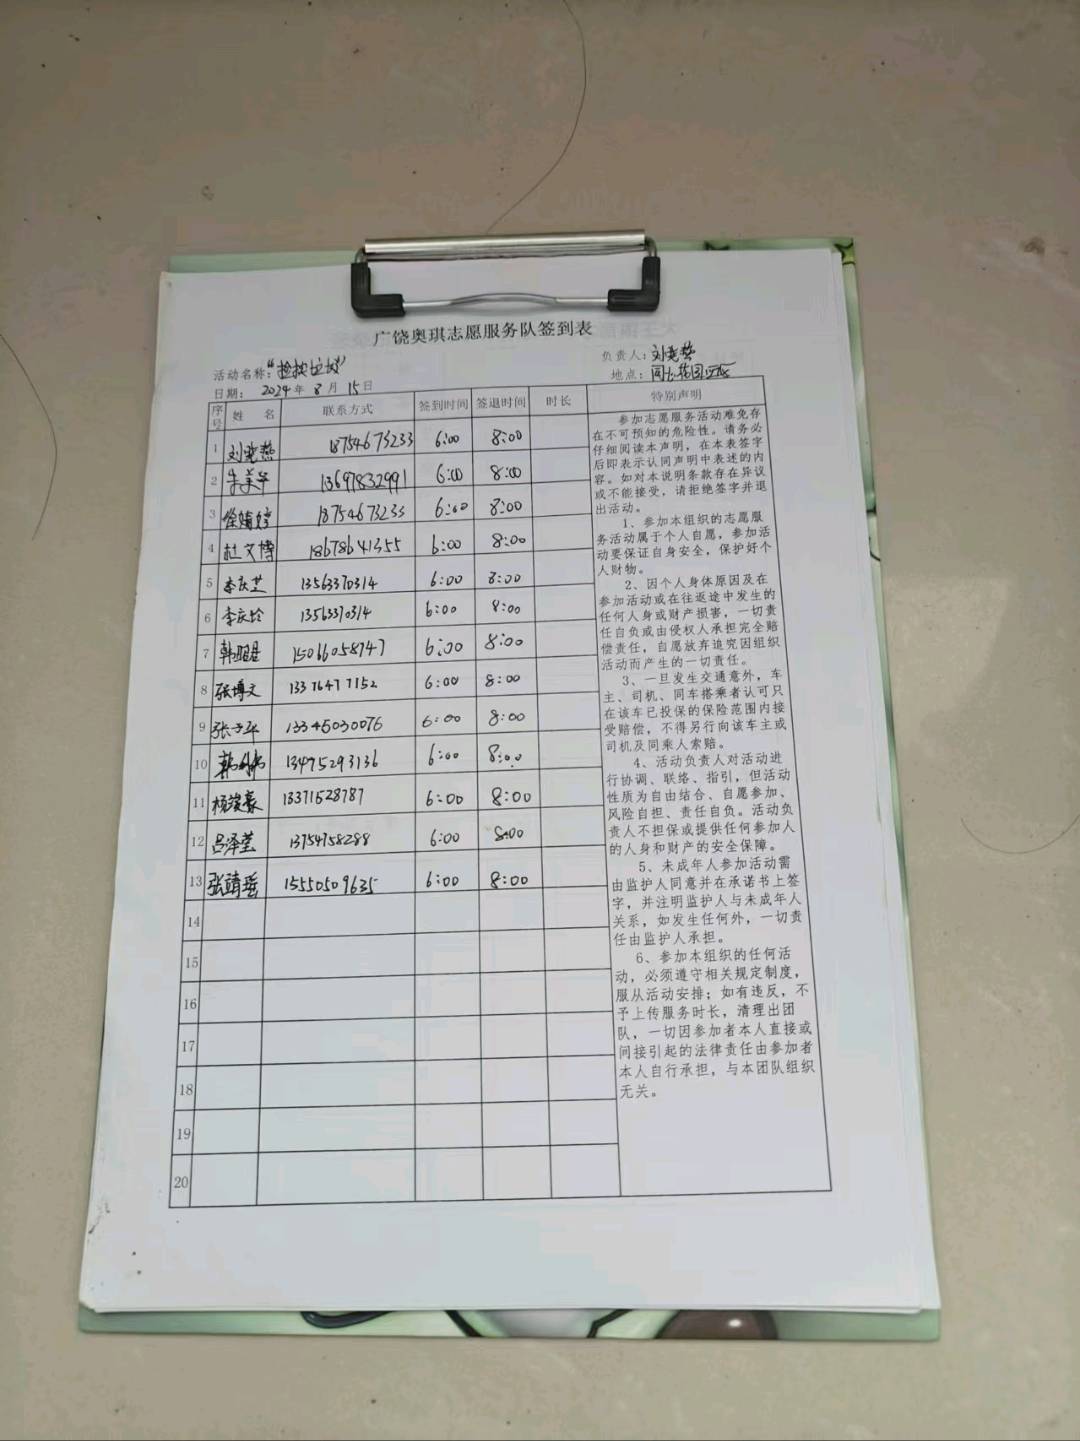 广饶奥琪志愿服务队签到表
活动名称："捡拾垃圾" 负责人：刘尧
日期： 2024年 8月 15日 地点：
序号 姓 名 联系方式 签到时间 签退时间 时长 特别声明
1 刘尧 18754673233 6:00 8:00
2 朱美华 13697832991 6:00 8:00
3 崔婧婷 18754673233 6:00 8:00
4 杜文博 18678641355 6:00 8:00
5 李庆芝 13563370314 6:00 8:00
6 李庆玲 13563370314 6:00 8:00
7 韩昭 15066058747 6:00 8:00
8 张博文 13376477152 6:00 8:00
9 张子平 13345030076 6:00 8:00
10 韩 13475293136 6:00 8:00
11 杨竣豪 13371528787 6:00 8:00
12 吕泽莹 13754758288 6:00 8:00
13 张靖瑶 15550509635 6:00 8:00
14
15
16
17
18
19
20
参加志愿服务活动难免存
在不可预知的危险性。请务必
仔细阅读本声明，在本表签字
后即表示认同声明中表述的内
容。如对本说明条款存在异议
或不能接受，请拒绝签字并退
出活动。
1、参加本组织的志愿服
务活动属于个人自愿，参加活
动要保证自身安全，保护好个
人财物。
2、因个人身体原因及在
参加活动或在往返途中发生的
任何人身或财产损害，一切责
任自负或由侵权人承担完全赔
偿责任，自愿放弃追究因组织
活动而产生的一切责任。
3、一旦发生交通意外，车
主、司机、同车搭乘者认可只
在该车已投保的保险范围内接
受赔偿，不得另行向该车主或
司机及同乘人索赔。
4、活动负责人对活动进
行协调、联络、指引，但活动
性质为自由结合、自愿参加、
风险自担、责任自负。活动负
责人不担保或提供任何参加人
的人身和财产的安全保障。
5、未成年人参加活动需
由监护人同意并在承诺书上签
字，并注明监护人与未成年人
关系，如发生任何外，一切责
任由监护人承担。
6、参加本组织的任何活
动，必须遵守相关规定制度，
服从活动安排；如有违反，不
予上传服务时长，清理出团
队，一切因参加者本人直接或
间接引起的法律责任由参加者
本人自行承担，与本团队组织
无关。